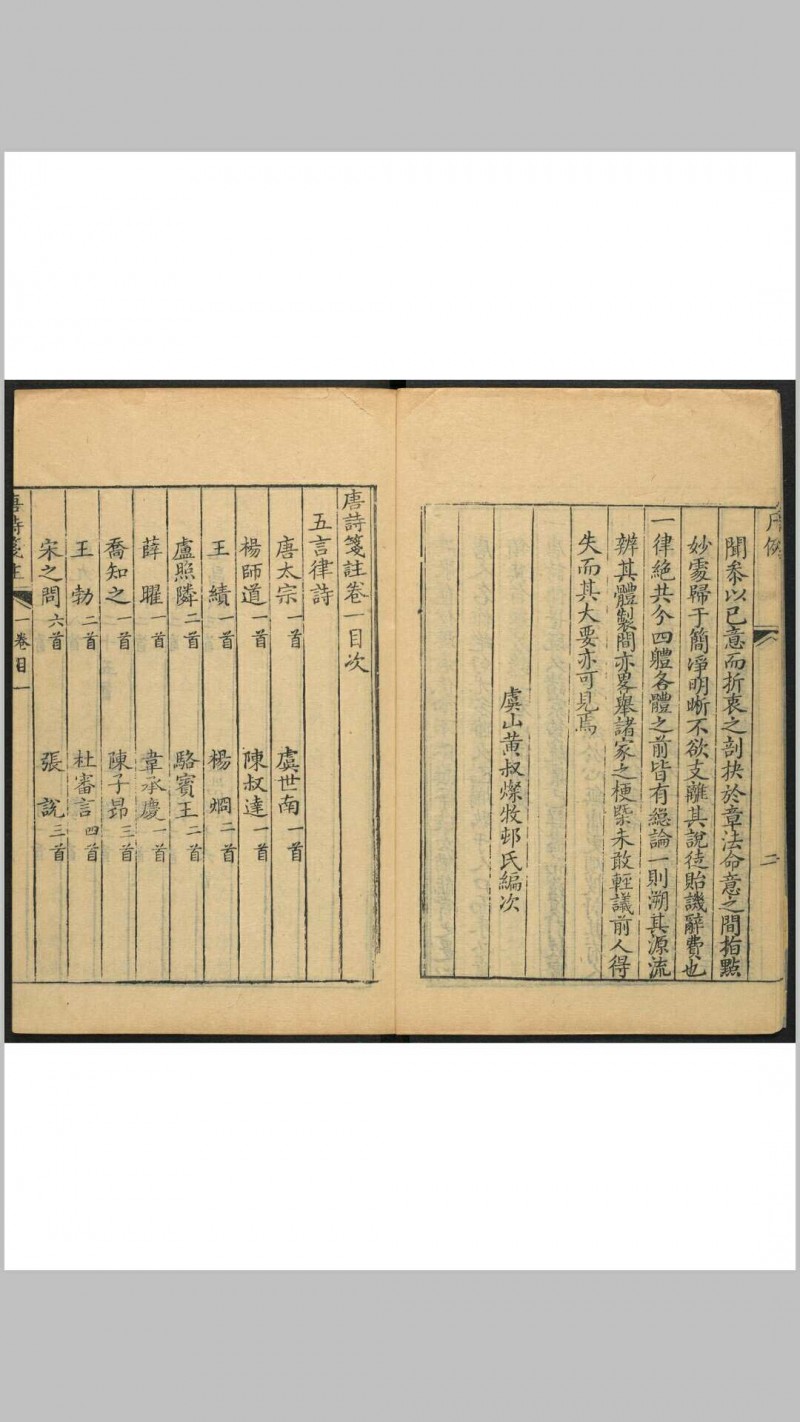 序例
二
聞叅以已意而折衷之剖抉於章法命意之間指㸃
妙䖏歸于簡凈明晰不欲支離其說徒貽譏辭費也
一律絕共分四軆各體之前皆有緫論一則溯其源流
辨其體製間亦畧舉諸家之梗槩未敢輕議前人得
失而其大要亦可見焉
虞山黄叔燦牧邨氏編次
唐詩箋註卷一目次
五言律詩
唐太宗一首 虞世南一首
楊師道一首 陳叔達一首
王績一首 楊烱二首
盧照隣二首 駱賓王二首
薛曜一首 韋承慶一首
喬知之一首 陳子昻三首
王勃二首 杜審言四首
宋之問六首 張說三首
唐詩箋註
卷一目
一